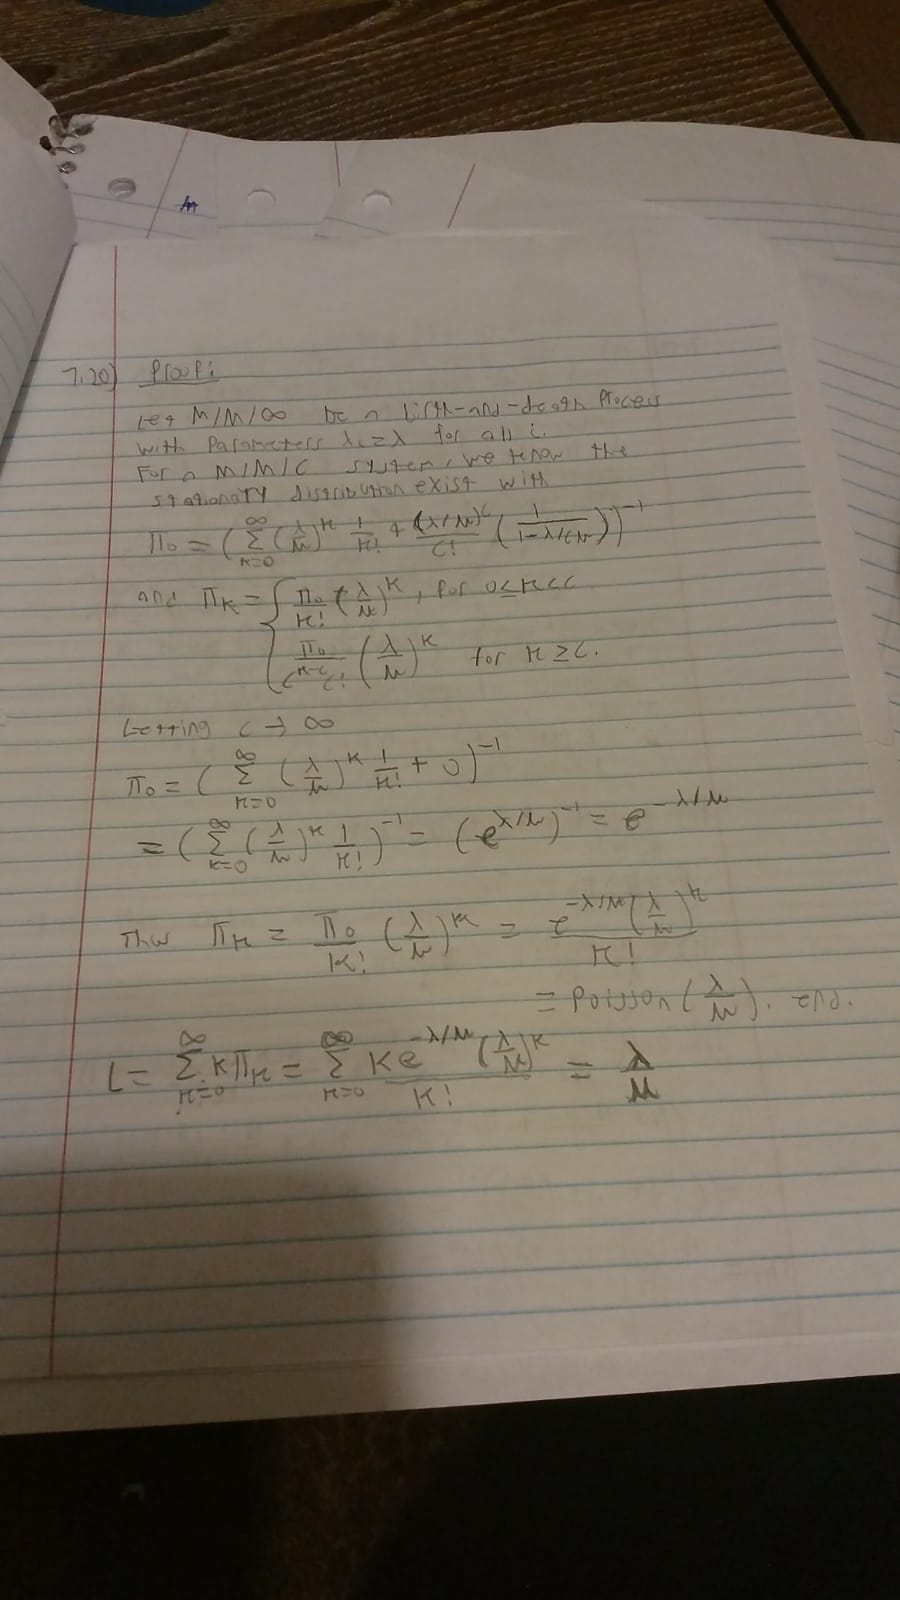 7.20) Proof:
Let M/M/∞ be a birth-and-death Process
with Parameters λi=λ for all i.
For a M/M/C system, we know the
stationary distribution exist with
Π₀ = (∑_{k=0}^{∞} (λ/μ)^k 1/k! + (λ/μ)^c/c! (1/(1-λ/cμ)))^{-1}
and Π_k = { Π₀/k! (λ/μ)^k, for 0≤k<c
Π₀/(c^{k-c} c!) (λ/μ)^k for k≥c.
Letting c → ∞
Π₀ = (∑_{k=0}^{∞} (λ/μ)^k 1/k! + 0)^{-1}
= (∑_{k=0}^{∞} (λ/μ)^k 1/k!)^{-1} = (e^{λ/μ})^{-1} = e^{-λ/μ}
Thus Π_k = Π₀/k! (λ/μ)^k = e^{-λ/μ}(λ/μ)^k/k!
= Poisson(λ/μ).
L = ∑_{k=0}^{∞} kΠ_k = ∑_{k=0}^{∞} k e^{-λ/μ} (λ/μ)^k/k! = λ/μ